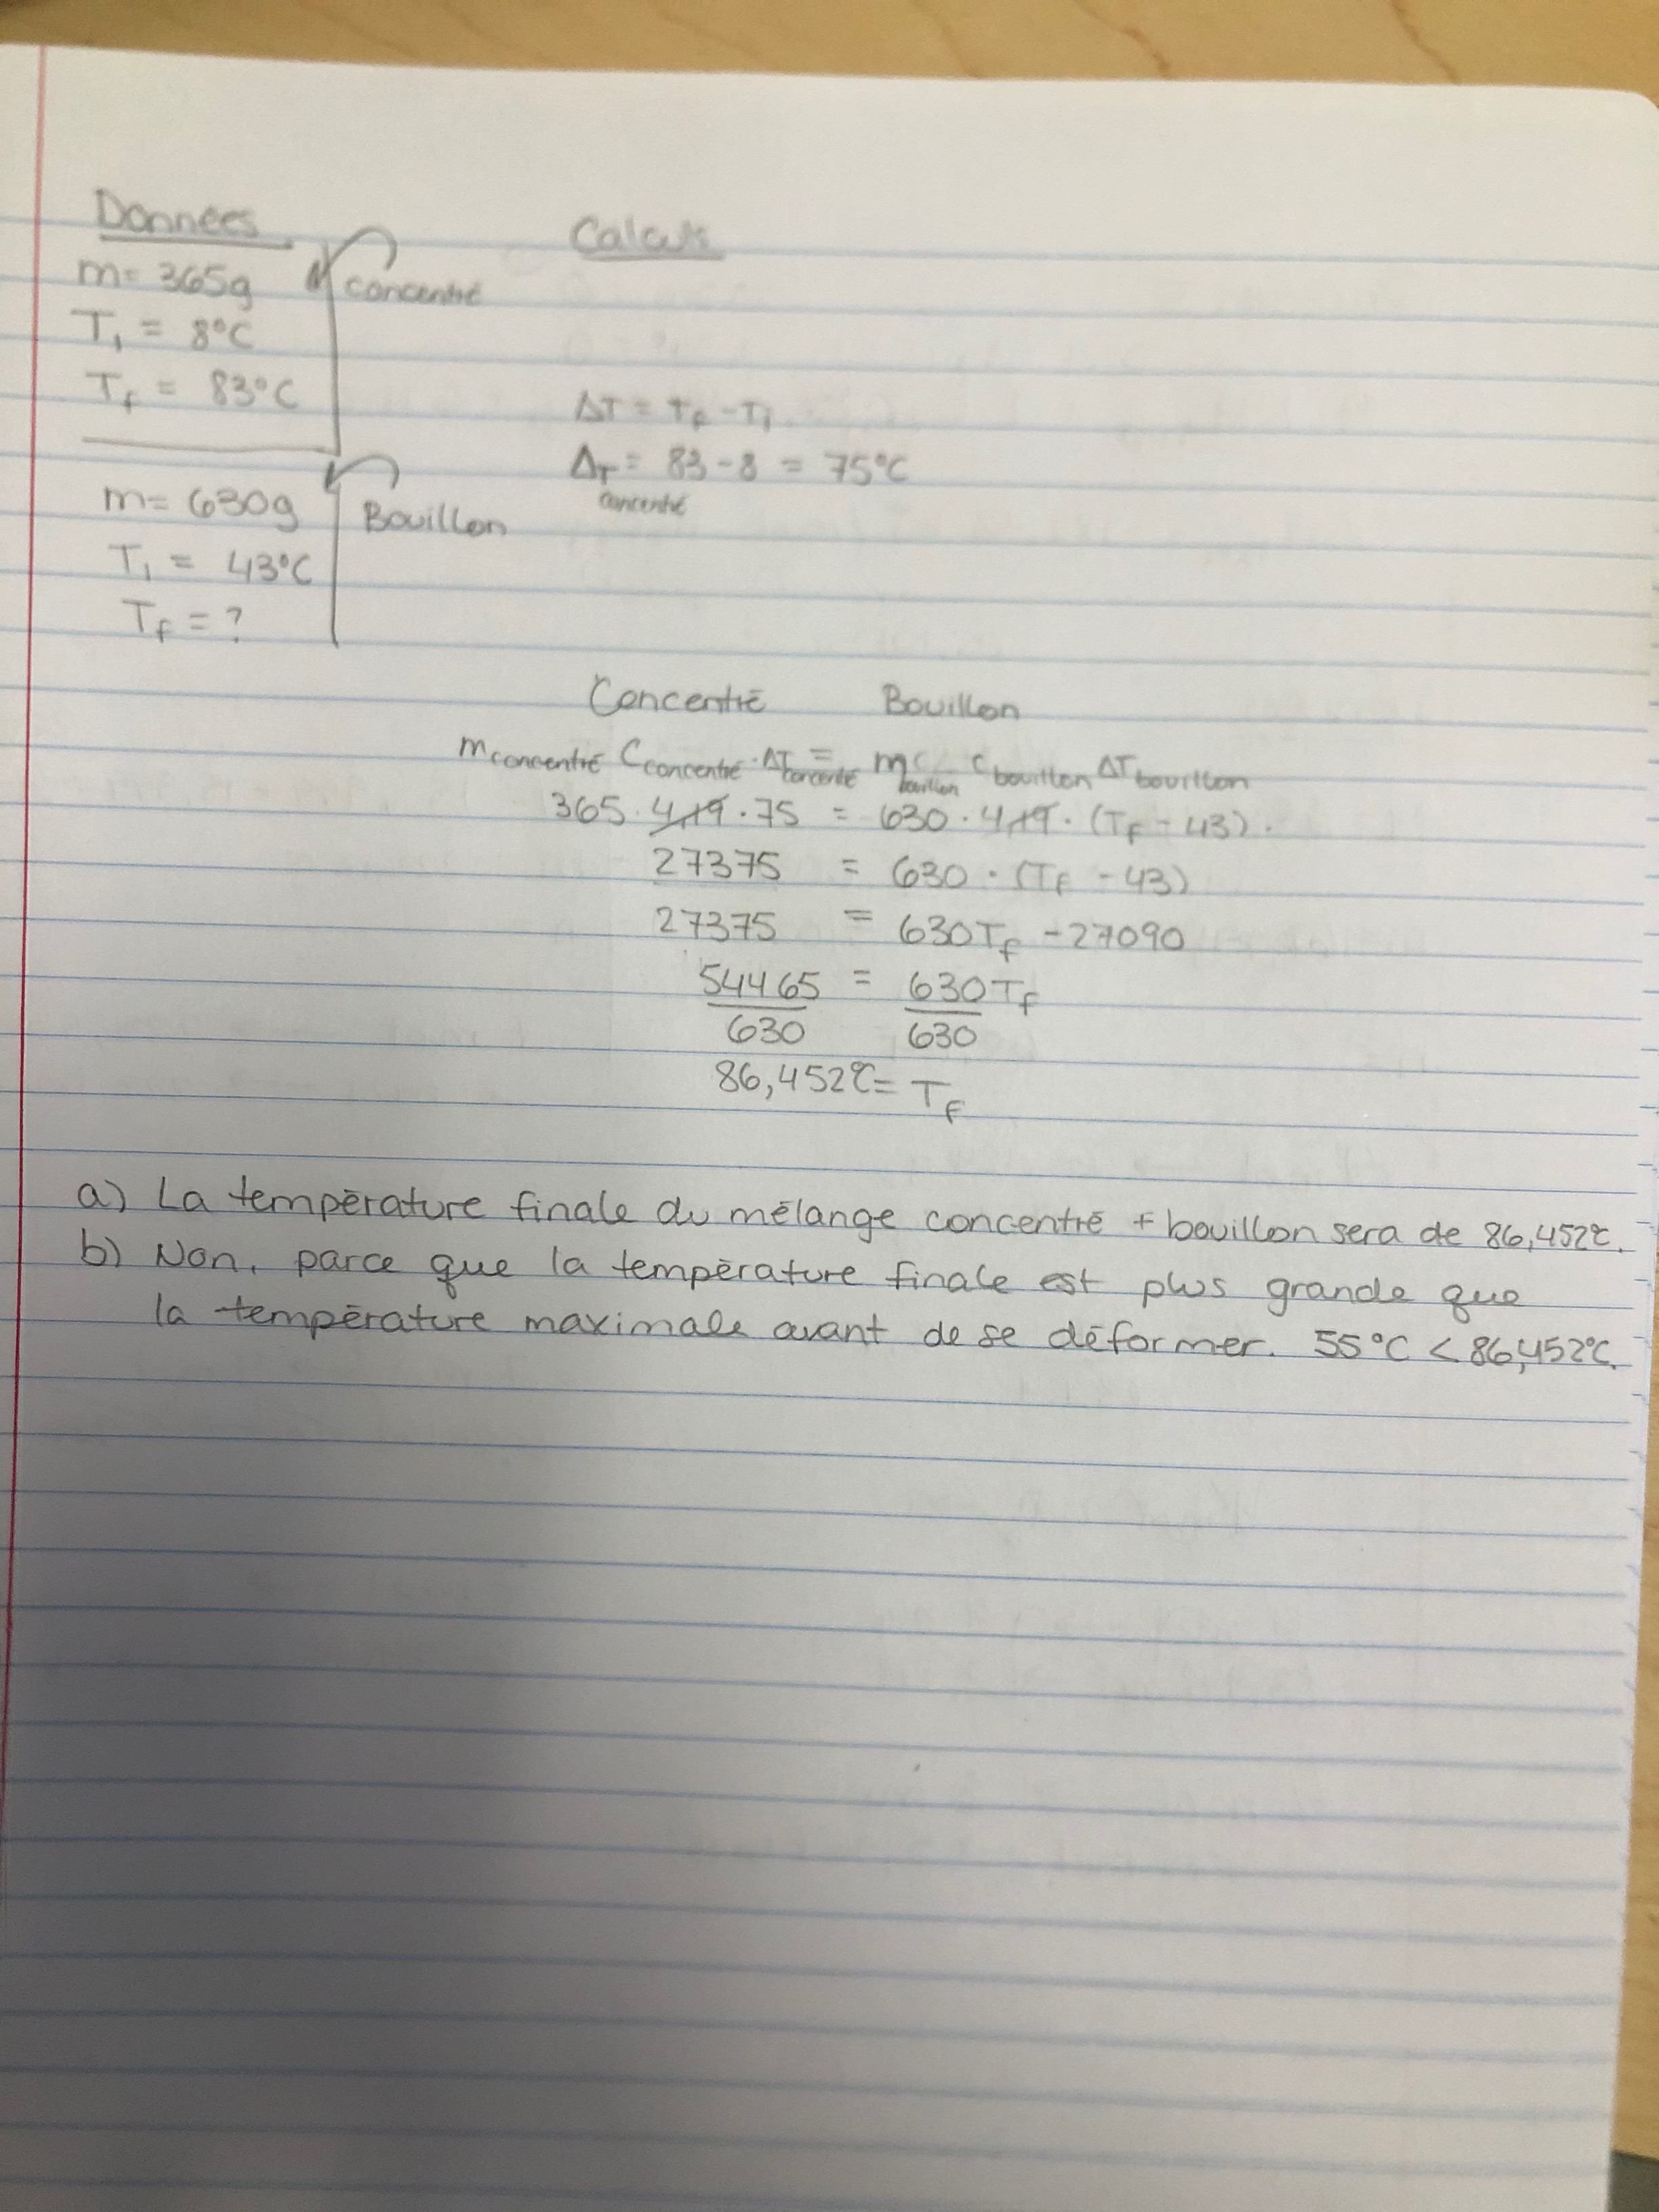 Données
m= 365g concentré
T₁ = 8°C
Tf = 83°C
m= 630g Bouillon
T₁ = 43°C
Tf = ?
Calculs
ΔT = Tf - Ti
ΔT = 83 - 8 = 75°C
concentré
Concentré Bouillon
mconcentré Cconcentré · ΔTconcentré = mbouillon cbouillon ΔTbouillon
365 · 4,19 · 75 = 630 · 4,19 · (Tf - 43).
27375 = 630 · (Tf - 43)
27375 = 630Tf - 27090
54465 = 630Tf
630 630
86,452℃ = Tf
a) La température finale du mélange concentré + bouillon sera de 86,452℃.
b) Non, parce que la température finale est plus grande que
la température maximale avant de se déformer. 55°C < 86,452℃.